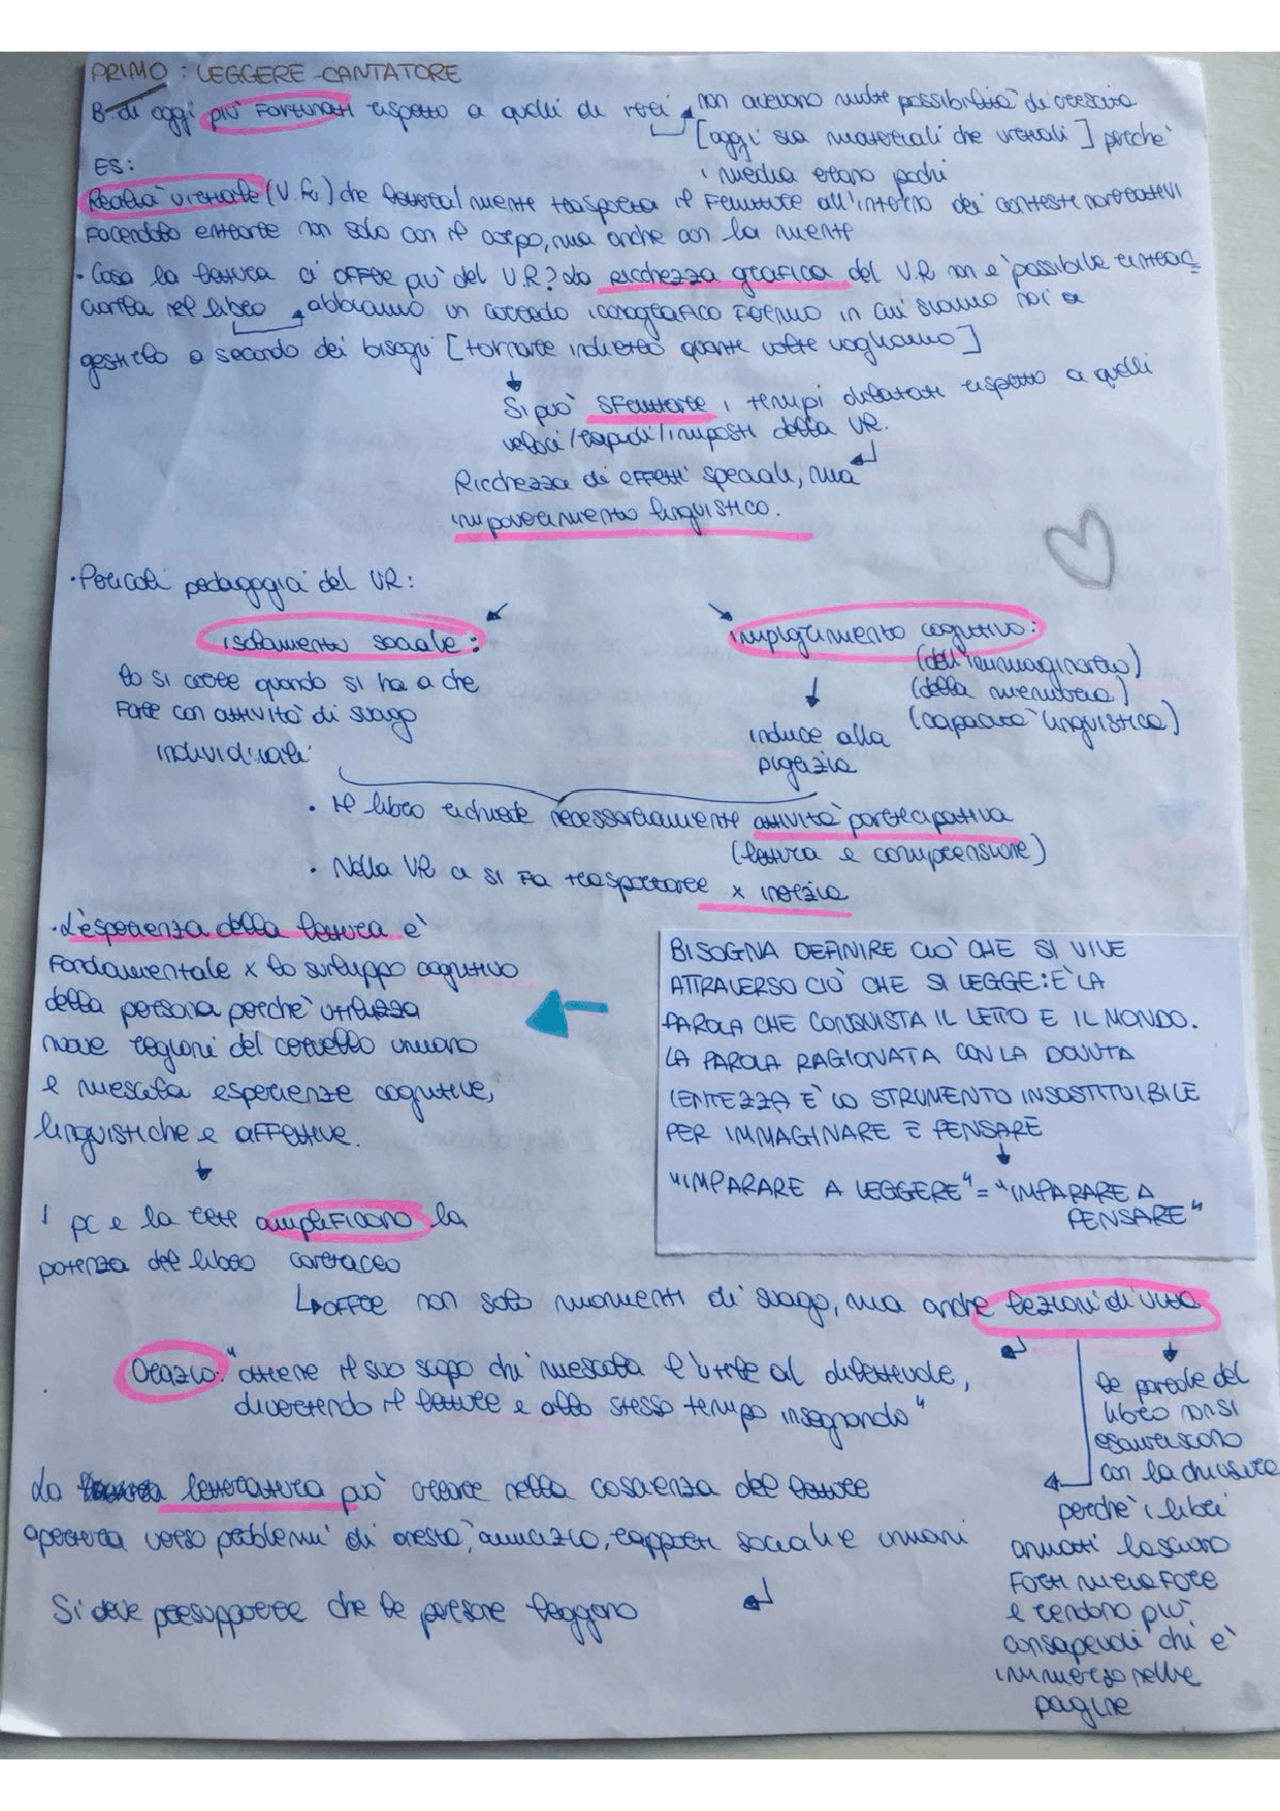 PRIMO : LEGGERE - CANTATORE
B. di oggi più FORTUNATI rispetto a quelli di ieri
non avevano molte possibilità di crescita
[oggi sia materiali che virtuali] perchè
i media erano pochi
ES:
Realtà virtuale (V.R.) che letteralmente trasporta il Fruitore all'interno dei contesti narrativi
Facendolo entrare non solo con il corpo, ma anche con la mente
• Cosa la lettura ci offre più del V.R? La ricchezza grafica del V.R non è possibile
nel libro abbiamo un corredo iconografico in cui siamo noi a
gestirlo a secondo dei bisogni [tornare indietro quante volte vogliamo]
Si può SFruttare i tempi dilatati rispetto a quelli
veloci/rapidi/imposti della VR.
Ricchezza di effetti speciali, ma
impoverimento linguistico.
• Pericoli pedagogici del VR:
isolamento sociale:
lo si corre quando si ha a che
Fare con attività di svago
individuali
impigrimento cognitivo:
(dell'immaginativo)
(della memoria)
(capacità linguistica)
induce alla
pigrizia
• Il libro richiede necessariamente attività partecipativa
(lettura e comprensione)
• Nella VR ci si Fa trasportare x inerzia
• L'esperienza della lettura è
Fondamentale x lo sviluppo cognitivo
della persona perchè utilizza
nuove regioni del cervello umano
e mescola esperienze cognitive,
linguistiche e affettive.
BISOGNA DEFINIRE CIÒ CHE SI VIVE
ATTRAVERSO CIÒ CHE SI LEGGE: È LA
PAROLA CHE CONQUISTA IL LETTO E IL MONDO.
LA PAROLA RAGIONATA CON LA DOVUTA
LENTEZZA È LO STRUMENTO INSOSTITUIBILE
PER IMMAGINARE E PENSARE
"IMPARARE A LEGGERE" = "IMPARARE A
PENSARE"
I pc e la rete amplificano la
potenza del libro cartaceo
offre non solo momenti di svago, ma anche lezioni di vita
Orazio: "ottiene il suo scopo chi mescola l'utile al dilettevole,
divertendo il lettore e allo stesso tempo insegnando"
le parole del
libro non si
esauriscono
con la chiusura
perchè i libri
amati lasciano
FORTI METAFORE
e rendono più
consapevoli chi è
immerso nelle
pagine
La letteratura può creare nella coscienza del lettore
apertura verso problemi di onestà, amicizia, rapporti sociali e umani
Si deve presupporre che le persone leggano